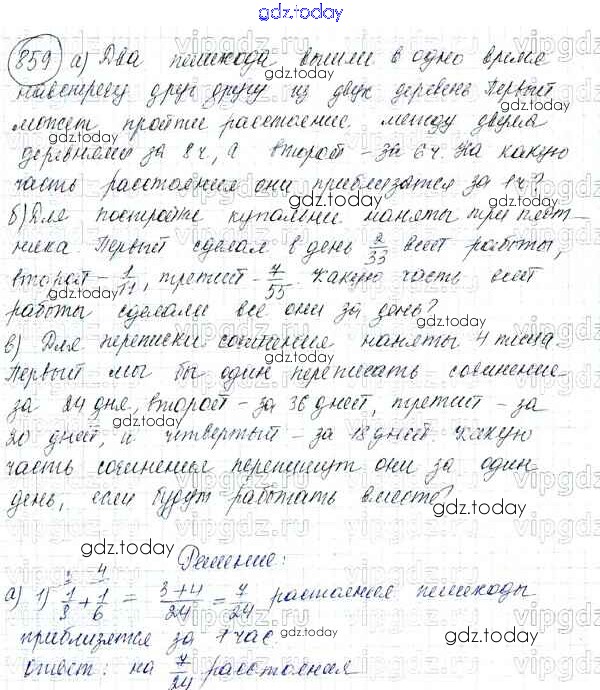 gdz.today
859 а) Два пешехода вышли в одно время
навстречу друг другу из двух деревень. Первый
может пройти расстояние между двумя
деревнями за 8 ч, а второй – за 6 ч. На какую
часть расстояния они приблизятся за 1 ч?
б) Для постройки купальни наняты три плот-
ника. Первый сделал в день 2/33 всей работы,
второй – 1/11, третий – 7/55. Какую часть всей
работы сделали все они за день?
в) Для переписки сочинения наняты 4 писца.
Первый мог бы один переписать сочинение
за 24 дня, второй – за 36 дней, третий – за
20 дней, и четвертый – за 18 дней. Какую
часть сочинения перепишут они за один
день, если будут работать вместе?
gdz.today
Решение:
а) 1) 1/8 + 1/6 = 3+4/24 = 7/24 расстояния пешеходы
приблизятся за 1 час.
Ответ: на 7/24 расстояния